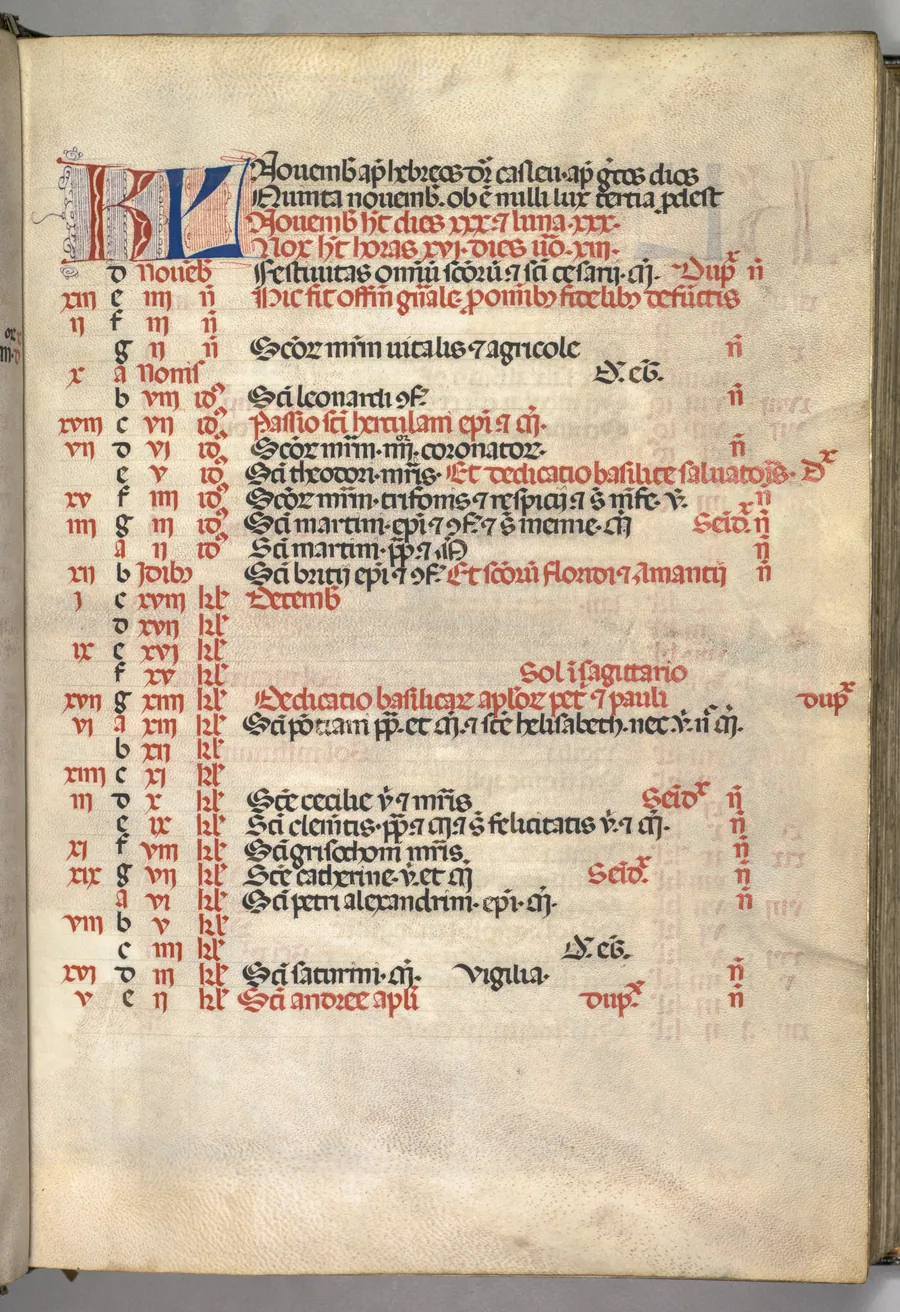 KL Nouemb̄ ap̄ hebreos dr̄ casleu·ap̄ gr̄cos dios
Quinta nouemb̄. ob ē nulli lux tertia ꝓdest
Nouemb̄ h̄t dies xxx·⁊ luna·xxx·
Nox h̄t horas xvi·dies u̅o·xiii·
d Noueb̄ Festiuitas omiū sc̄orū ⁊ sc̄i cesarij·m̄. Dupx n̄
xiii e iiii n̄ Hic fit offm̄ gn̄ale ꝓ omib; fidelib; defūctis
ii f iii n̄
g ii n̄ Sc̄oꝝ mr̄m uitalis ⁊ agricole n̄
x a Nonis D. eḡ.
b viii id9 Sc̄i leonardi ꝯf. n̄
xviii c vii id9 Passio sc̄i herculani ep̄i ⁊ m̄.
vii d vi id9 Sc̄oꝝ mr̄m·iiiior·coronatoꝝ. n̄
e v id9 Sc̄i theodori·mr̄is· Et dedicatio basilice saluatoris· Dx
xv f iiii id9 Sc̄oꝝ mr̄m·trifonis ⁊ respicij ⁊ s̄ nīfe·v̄. n̄
iiii g iii id9 Sc̄i martini·ep̄i ⁊ ꝯf·⁊ s̄ menne·m̄ Semd.x n̄
a ii id9 Sc̄i martini·pp̄·⁊ m̄ n̄
xii b Idib; Sc̄i britij ep̄i ⁊ ꝯf. Et sc̄orū floridi ⁊ Amantij n̄
i c xviii kl̄ Decemb̄
d xvii kl̄
ix e xvi kl̄
f xv kl̄ Sol ī sagittario
xvii g xiiii kl̄ Dedicatio basilicaꝝ apl̄oꝝ pet̄ ⁊ pauli dupx
vi a xiii kl̄ Sc̄i pōtiani pp̄. et m̄.⁊ sc̄e helisabeth·nec v̄.n̄ m̄.
b xii kl̄
xiiii c xi kl̄
iii d x kl̄ Sc̄e cecilie v̄ ⁊ mr̄is Semdx n̄
e ix kl̄ Sc̄i clem̄tis·pp̄·⁊ m̄·⁊ s̄ felicitatis v̄·⁊ m̄. n̄
xi f viii kl̄ Sc̄i grisogoni mr̄is n̄
xix g vii kl̄ Sc̄e catherine·v̄.et m̄ Semd.x n̄
a vi kl̄ Sc̄i petri alexandrini·ep̄i·m̄. n̄
viii b v kl̄
c iiii kl̄ D. eḡ.
xvi d iii kl̄ Sc̄i saturini·m̄. Vigilia· n̄
v e ii kl̄ Sc̄i andree apl̄i dup.x n̄